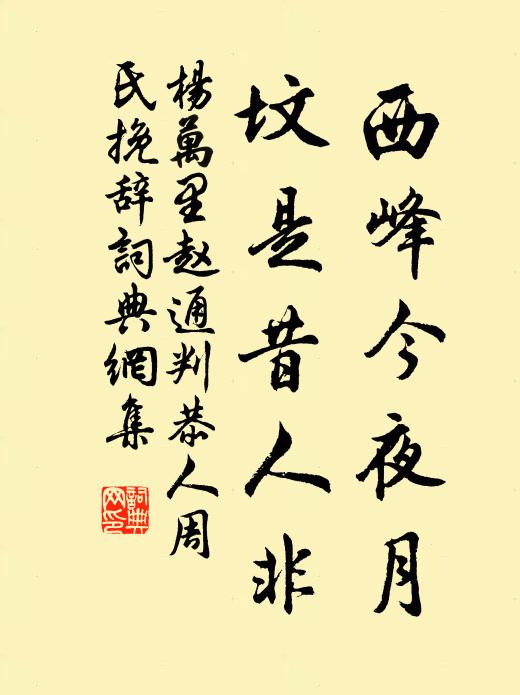 西峰今夜月
坟是昔人非
楊萬里赵通判恭人周
氏挽辞詞典網集
詞典网印